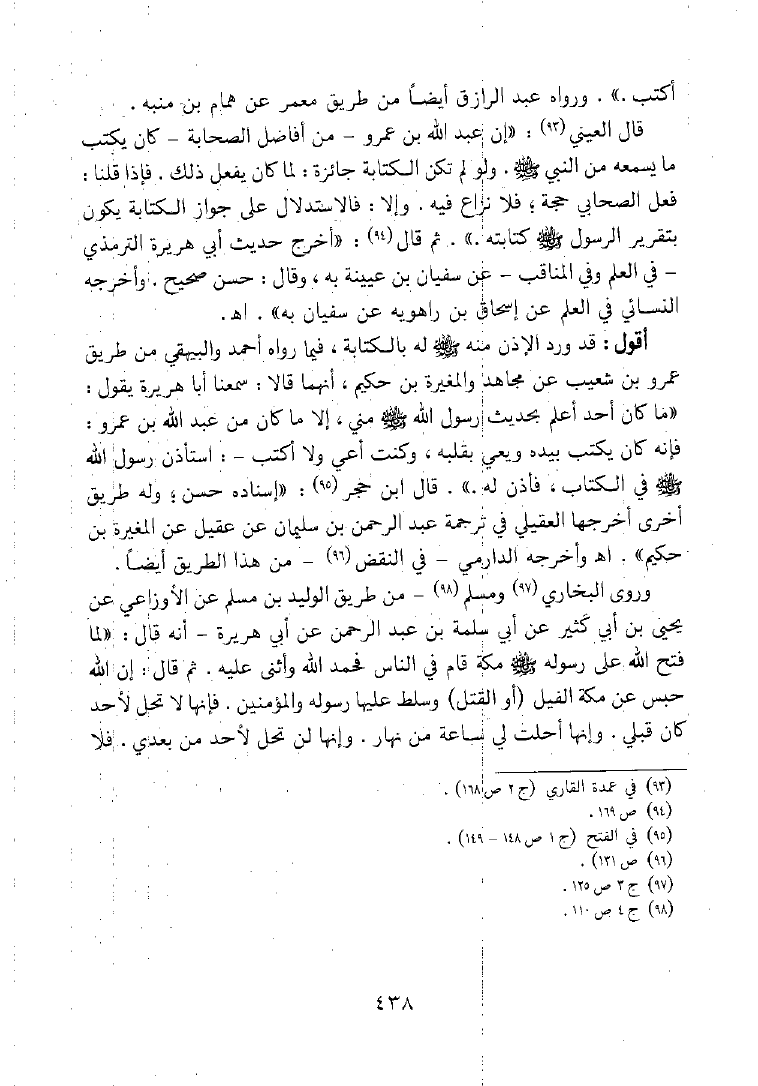 أكتب .» . ورواه عبد الرازق أيضاً من طريق معمر عن همام بن منبه .
قال العيني (٩٣) : «إن عبد الله بن عمرو – من أفاضل الصحابة – كان يكتب
ما يسمعه من النبي ﷺ . ولو لم تكن الكتابة جائزة : لما كان يفعل ذلك . فإذا قلنا :
فعل الصحابي حجة ؛ فلا نزاع فيه . وإلا : فالاستدلال على جواز الكتابة يكون
بتقرير الرسول ﷺ كتابته .» . ثم قال (٩٤) : «أخرج حديث أبي هريرة الترمذي
– في العلم وفي المناقب – عن سفيان بن عيينة به ، وقال : حسن صحيح . وأخرجه
النسائي في العلم عن إسحاق بن راهويه عن سفيان به» . اهـ.
أقول : قد ورد الإذن منه ﷺ له بالكتابة ، فيما رواه أحمد والبيهقي من طريق
عمرو بن شعيب عن مجاهد والمغيرة بن حكيم ، أنهما قالا : سمعنا أبا هريرة يقول :
«ما كان أحد أعلم بحديث رسول الله ﷺ مني ، إلا ما كان من عبد الله بن عمرو :
فإنه كان يكتب بيده ويعي بقلبه ، وكنت أعي ولا أكتب – : استأذن رسول الله
ﷺ في الكتاب ، فأذن له .» . قال ابن حجر (٩٥) : «إسناده حسن ؛ وله طريق
أخرى أخرجها العقيلي في ترجمة عبد الرحمن بن سليمان عن عقيل عن المغيرة بن
حكيم» . اهـ وأخرجه الدارمي – في النقض (٩٦) – من هذا الطريق أيضاً .
وروى البخاري (٩٧) ومسلم (٩٨) – من طريق الوليد بن مسلم عن الأوزاعي عن
يحيى بن أبي كَثير عن أبي سلمة بن عبد الرحمن عن أبي هريرة – أنه قال : «لما
فتح الله على رسوله ﷺ مكة قام في الناس فحمد الله وأثنى عليه . ثم قال : إن الله
حبس عن مكة الفيل (أو القتل) وسلط عليها رسوله والمؤمنين . فإنها لا تحل لأحد
كان قبلي . وإنها أحلت لي ساعة من نهار . وإنها لن تحل لأحد من بعدي . فلا
(٩٣) في عمدة القاري (ج ٢ ص ١٦٨) .
(٩٤) ص ١٦٩ .
(٩٥) في الفتح (ج ١ ص ١٤٨ – ١٤٩) .
(٩٦) ص ١٣١) .
(٩٧) ج ٣ ص ١٢٥ .
(٩٨) ج ٤ ص ١١٠ .
٤٣٨